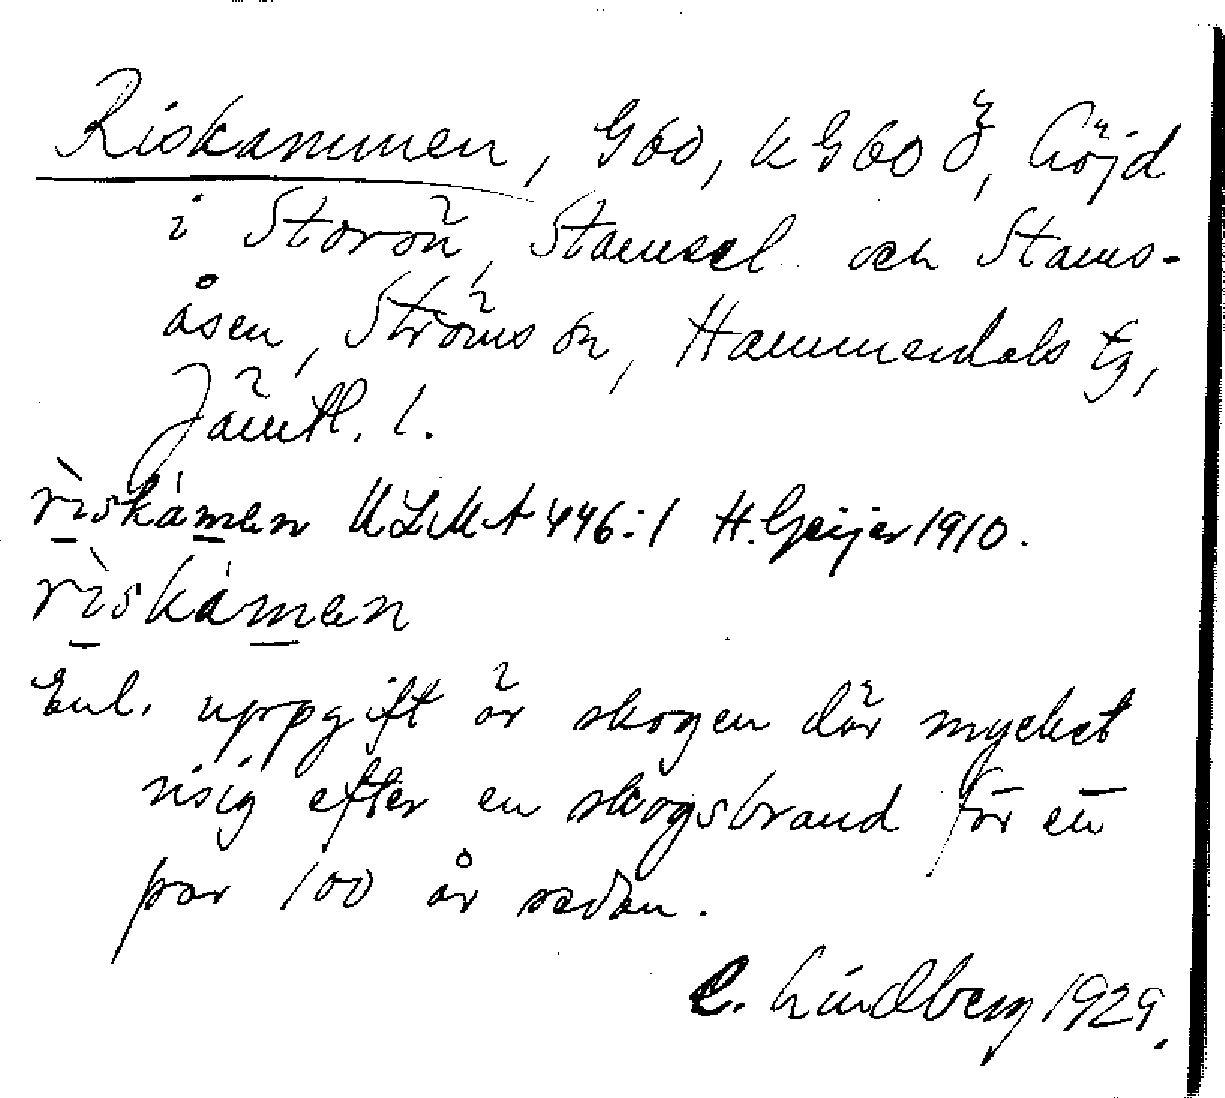 Riskammen, G60, k G60 Ö, höjd
i Storön, Stamsel och Stams-
åsen, Ströms sn, Hammerdals tg,
Jämtl. l.
rìskámen ULMA 446:1 H. Geijer 1910.
rìskámen
Enl. uppgift är skogen där mycket
risig efter en skogsbrand för ett
par 100 år sedan.
C. Lindberg 1929.